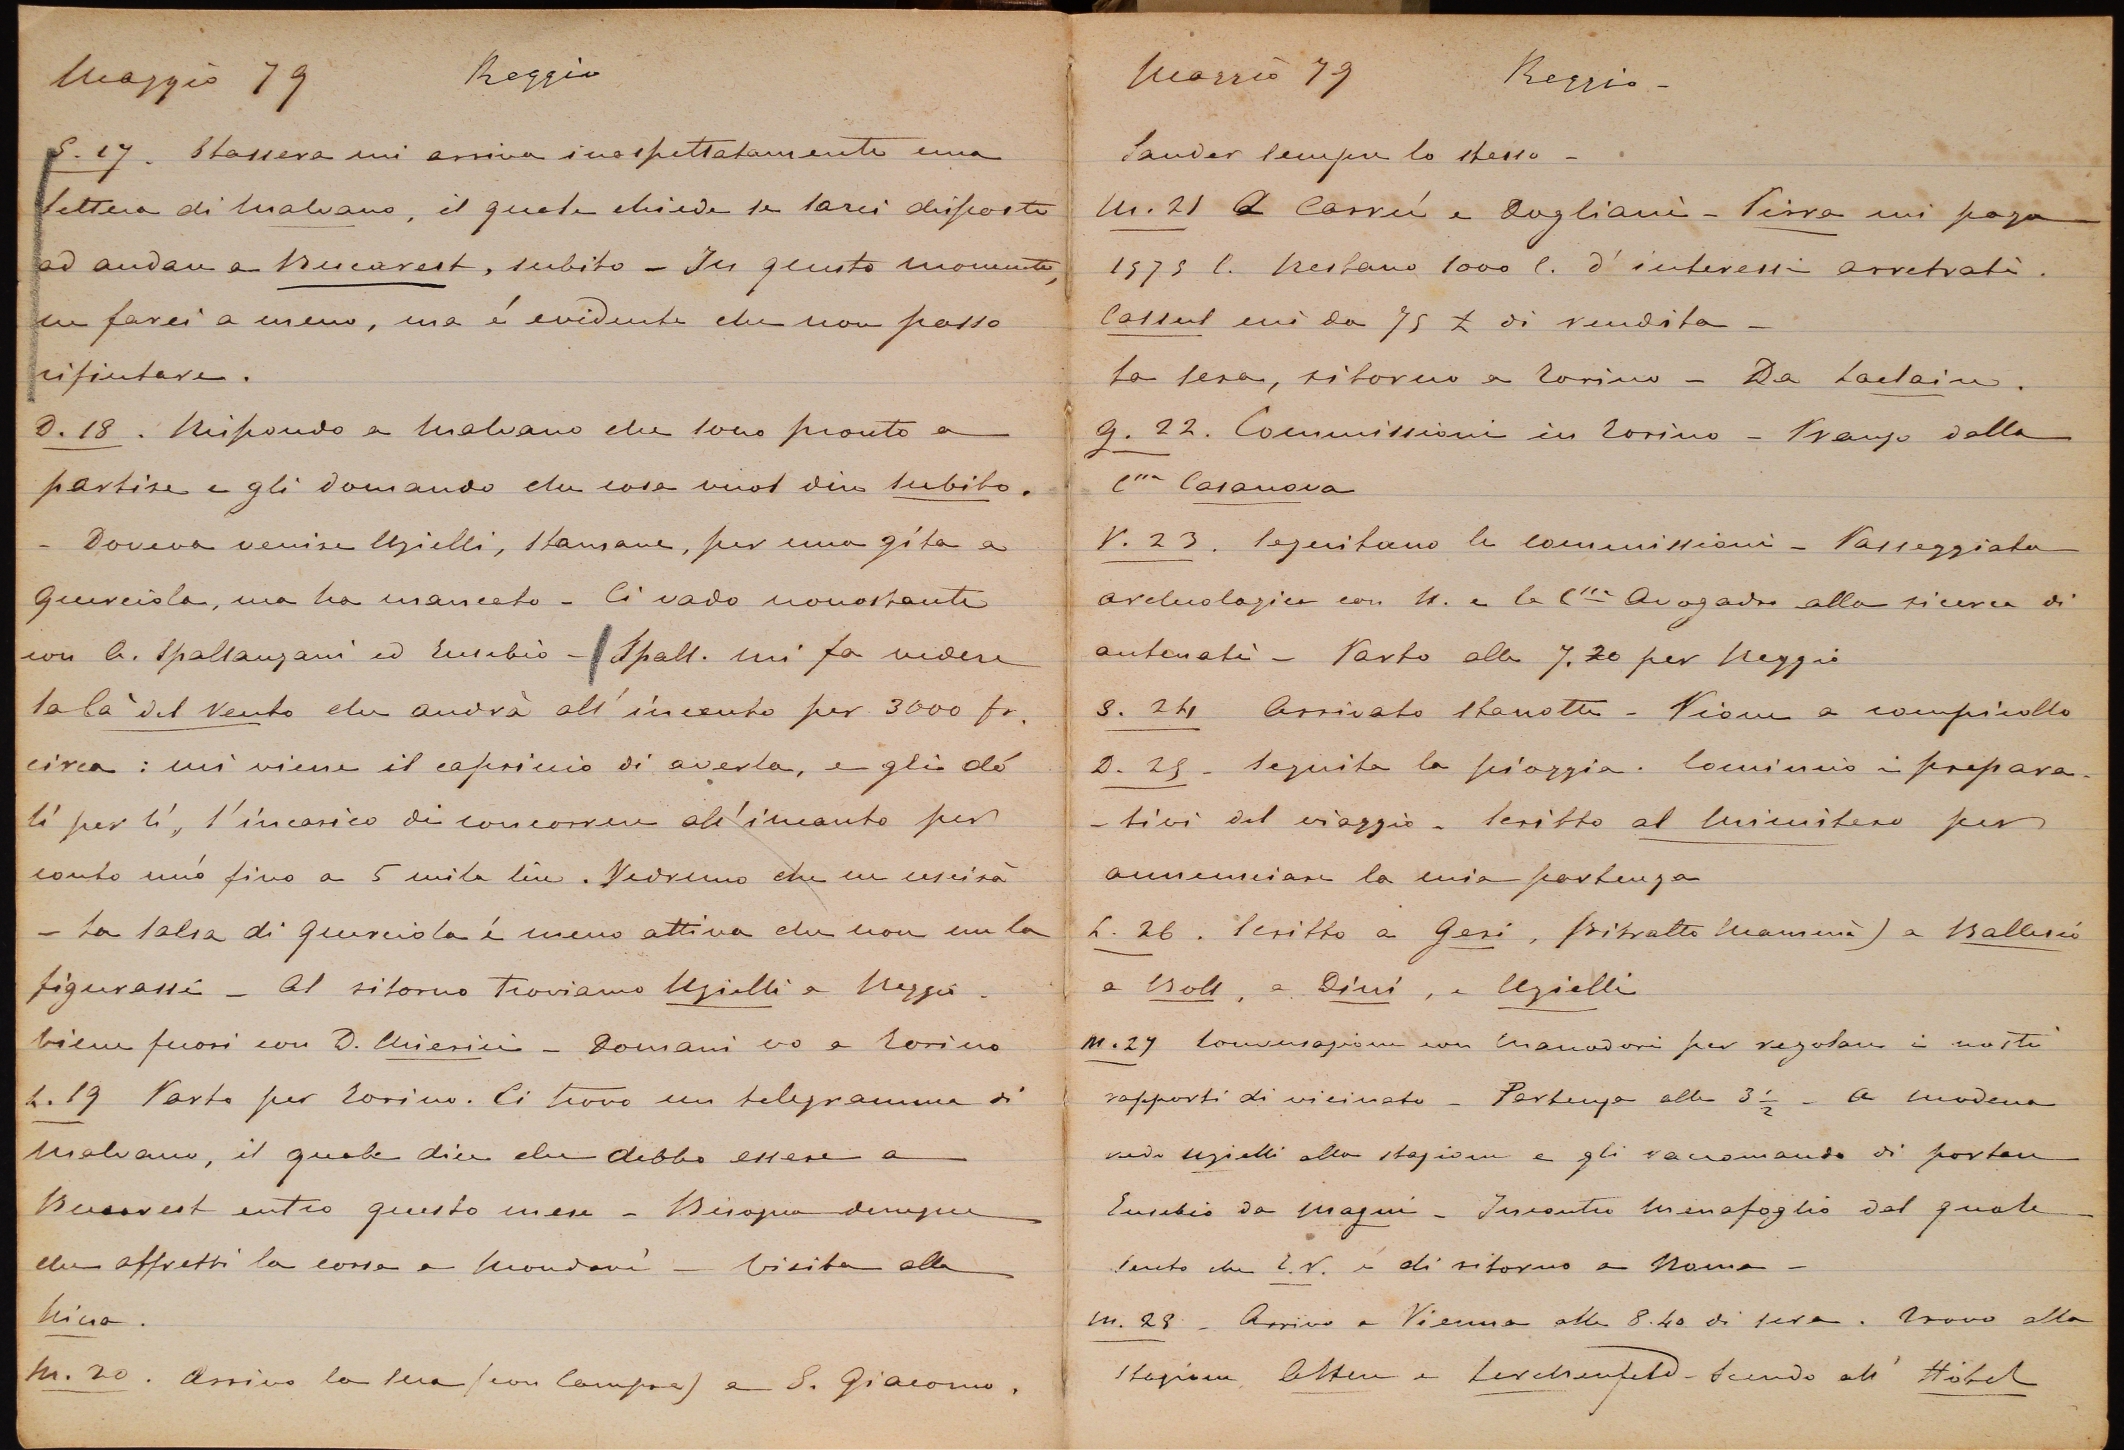 Maggio 79 Reggio
S. 17. Stassera mi arriva inaspettatamente una
lettera di Malvano, il quale chiede se sarei disposto
ad andare a Bucarest, subito - In questo momento,
ne farei a meno, ma é evidente che non posso
rifiutare.
D. 18. Rispondo a Malvano che sono pronto a
partire e gli domando che cosa vuol dire subito.
- Doveva venire Uzielli, stamane, per una gita a
Querciola, ma ha mancato - Ci vado nonostante
con A. Spallanzani ed Eusebio - Spall. mi fa vedere
la Cà del Vento che andrà all'incanto per 3000 fr.
circa: mi viene il capriccio di averla, e gli dó
lí per lí, l'incarico di concorrere all'incanto per
conto mió fino a 5 mila lire. Vedremo che ne uscirà
- La salsa di Querciola é meno attiva che non me la
figurassi - Al ritorno troviamo Uzielli a Reggio.
Viene fuori con D. Chierici - Domani vo a Torino
L. 19 Parto per Torino. Ci trovo un telegramma di
Malvano, il quale dice che debbo essere a
Bucarest entro questo mese - Bisogna dunque
che affretti la corsa a Mondoví - Visita alla
Nina.
M. 20. Arrivo la sera (con Compra) a S. Giacomo.
Maggio 79 Reggio -
Sander sempre lo stesso -
M. 21 A Carrú e Dogliani - Pirra mi paga
1575 l. Restano 1000 l. d'interessi arretrati.
Cassul mi da 75 £ di rendita -
La sera, ritorno a Torino - Da Laclaire.
G. 22. Commissioni in Torino - Pranzo dalla
C.ssa Casanova
V. 23. Seguitano le commissioni - Passeggiata
archeologica con N. e la C.ssa Avogadro alla ricerca di
antenati - Parto alle 7.20 per Reggio
S. 24 Arrivato stanotte - Piove a rompicollo
D. 25 - Seguita la pioggia. Comincio i prepara-
-tivi del viaggio - Scritto al Ministero per
annunciare la mia partenza
L. 26. Scritto a Geri, (ritratto Mammà) a Ballerio
a Boll, a Dini, a Uzielli
M. 27 Conversazione con Manodori per regolare i nostri
rapporti di vicinato - Partenza alle 3 1/2 - A Modena
vedo Uzielli alla stazione e gli raccomando di portare
Eusebio da Magni - Incontro Menafoglio dal quale
sento che E.V. é di ritorno a Roma -
M. 28 - Arrivo a Vienna alle 8.40 di sera. Trovo alla
stazione e Lerchenfeld - Scendo all' Hôtel